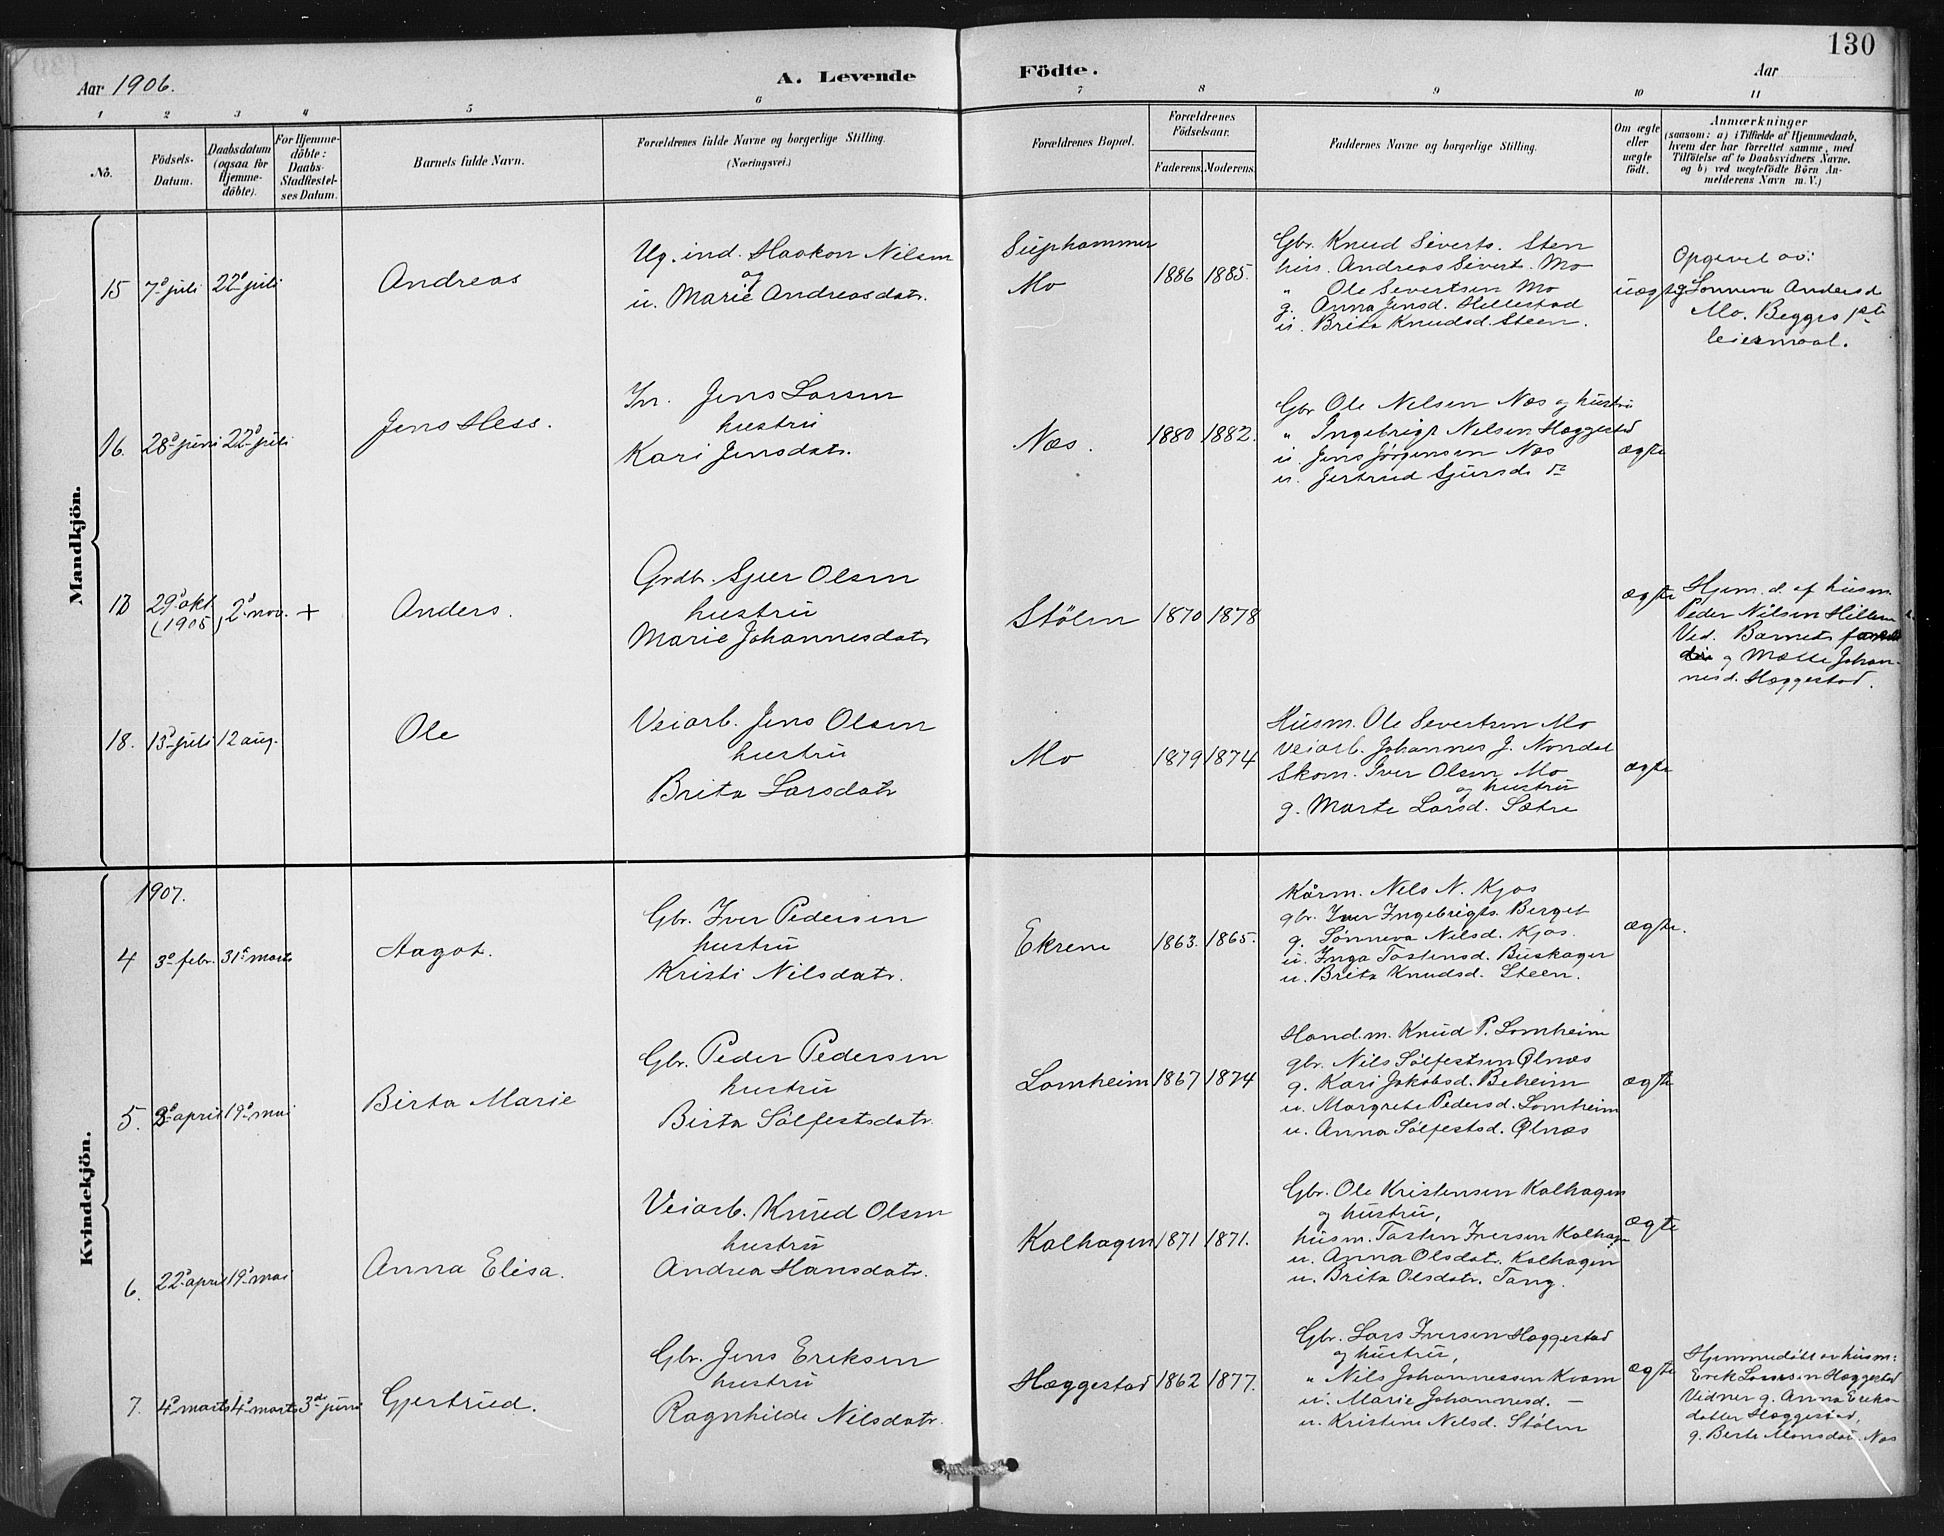 130
Aar 1906.
A. Levende Födte.
Aar
1 2 3 4 5 6 7 8 9 10 11
No.
Födsels-
Datum.
Daabsdatum
(ogsaa for
Hjemme-
döbte).
For Hjemme-
döbte:
Daabs-
Stadfæstel-
ses Datum.
Barnets fulde Navn.
Forældrenes fulde Navne og borgerlige Stilling.
(Næringsvei.)
Forældrenes Bopæl.
Forældrenes
Födselsaar.
Faderens. Moderens.
Faddernes Navne og borgerlige Stilling.
Om ægte
eller
uægte
födt.
Anmærkninger
(saasom: a) i Tilfælde af Hjemmedaab,
hvem der har forrettet samme, med
Tilföielse af to Daabsvidners Navne,
og b) ved uægtefödte Börn An-
melderens Navn m. V.)
Mandkjön.
15 7d juli 22d juli
Andreas
Ug. ind. Haakon Nilsen
og
u. Marie Andreasdatr.
Mo
1886 1885.
Gbr. Knud Siverts. Sten
hus. Andreas Sivert. Mo
" Ole Severtsen Mo
g. Anna Jensd. Hillestad
u. Brita Knudsd. Steen.
uægte
Opgivet av:
Sønneva Andersd
Mo. Begges 1ste
leiermaal.
16. 28d juni 22d juli
Jens Hess.
In. Jens Larsen
hustru
Kari Jensdatr.
Næs.
1880 1882.
Gbr Ole Nelsen Næs og hustru
" Ingebrigt Nelsen Hæggestad
u. Jens Jørgensen Næs
u. Gertrud Sjursd. do
ægte
29d okt. 2d nov. +
(1905)
Anders.
Grdbr. Sjur Olsen
hustru
Marie Johannesdatr
Stølen
1870 1878
ægte
Hjem. d. af husm.
Peder Nilsen
Ved. Barnets
og Mætte Johan-
nesd. Hæggestad.
18. 15d juli 12 aug.
Ole
Veiarb. Jens Olsen
hustru
Brita Larsdatr
Mo
1879 1874
Husm. Ole Severtsen Mo
Veiarb. Johannes J. Nondal
Skom. Iver Olsen Mo
og hustru
g. Marte Larsd. Sætre
ægte
Kvindekjön.
1907.
4 3d febr. 31d marts
Aagot.
Gbr. Iver Pedersen
hustru
Kristi Nilsdatr.
Ekrene
1863. 1865.
Kårm. Nels N. Kjos
gbr. Iver Ingebrigts. Berget
g. Sønneva Nilsd. Kjos.
u. Inga Tostensd. Buskager
u. Brita Knudsd. Steen.
ægte.
5. 3d april 19d mai
Birta Marie
Gbr. Peder Pedersen
hustru
Birta Sølfestsdatr.
Lomheim
1867 1874
Hand.m. Knud P. Lomheim
gbr. Nils Sølfestsen Ølnæs
g. Kari Jakobsd. Beheim
u. Margrete Pedersd. Lomheim
u. Anna Sølfestsd. Ølnæs
ægte
6. 22d april 19d mai
Anna Elisa.
Veiarb. Knud Olsen
hustru
Andrea Hansdatr.
Kalhagen
1871 1871.
Gbr. Ole Kristensen Kalhagen
og hustru,
husm. Tosten Iversen Kalhag
u. Anna Olsdatr. Kalhagen
u. Brita Olsdatr. Tang.
ægte
7. 4d marts 4d marts 3die juni
Gjertrud.
Gbr. Jens Eriksen
hustru
Ragnhilde Nilsdatr.
Hæggestad
1862 1877.
Gbr. Lars Iversen Hæggestad
og hustru,
" Nils Johannessen Kvam
u. Marie Johannesd. —
u. Kristine Nilsd. Stølen
ægte
Hjemmedøbt av husm:
Erik Larssen Hæggestad
Vidner g. Anna Eriks-
datter Hæggestad,
g. Berte Monsdat. Næs